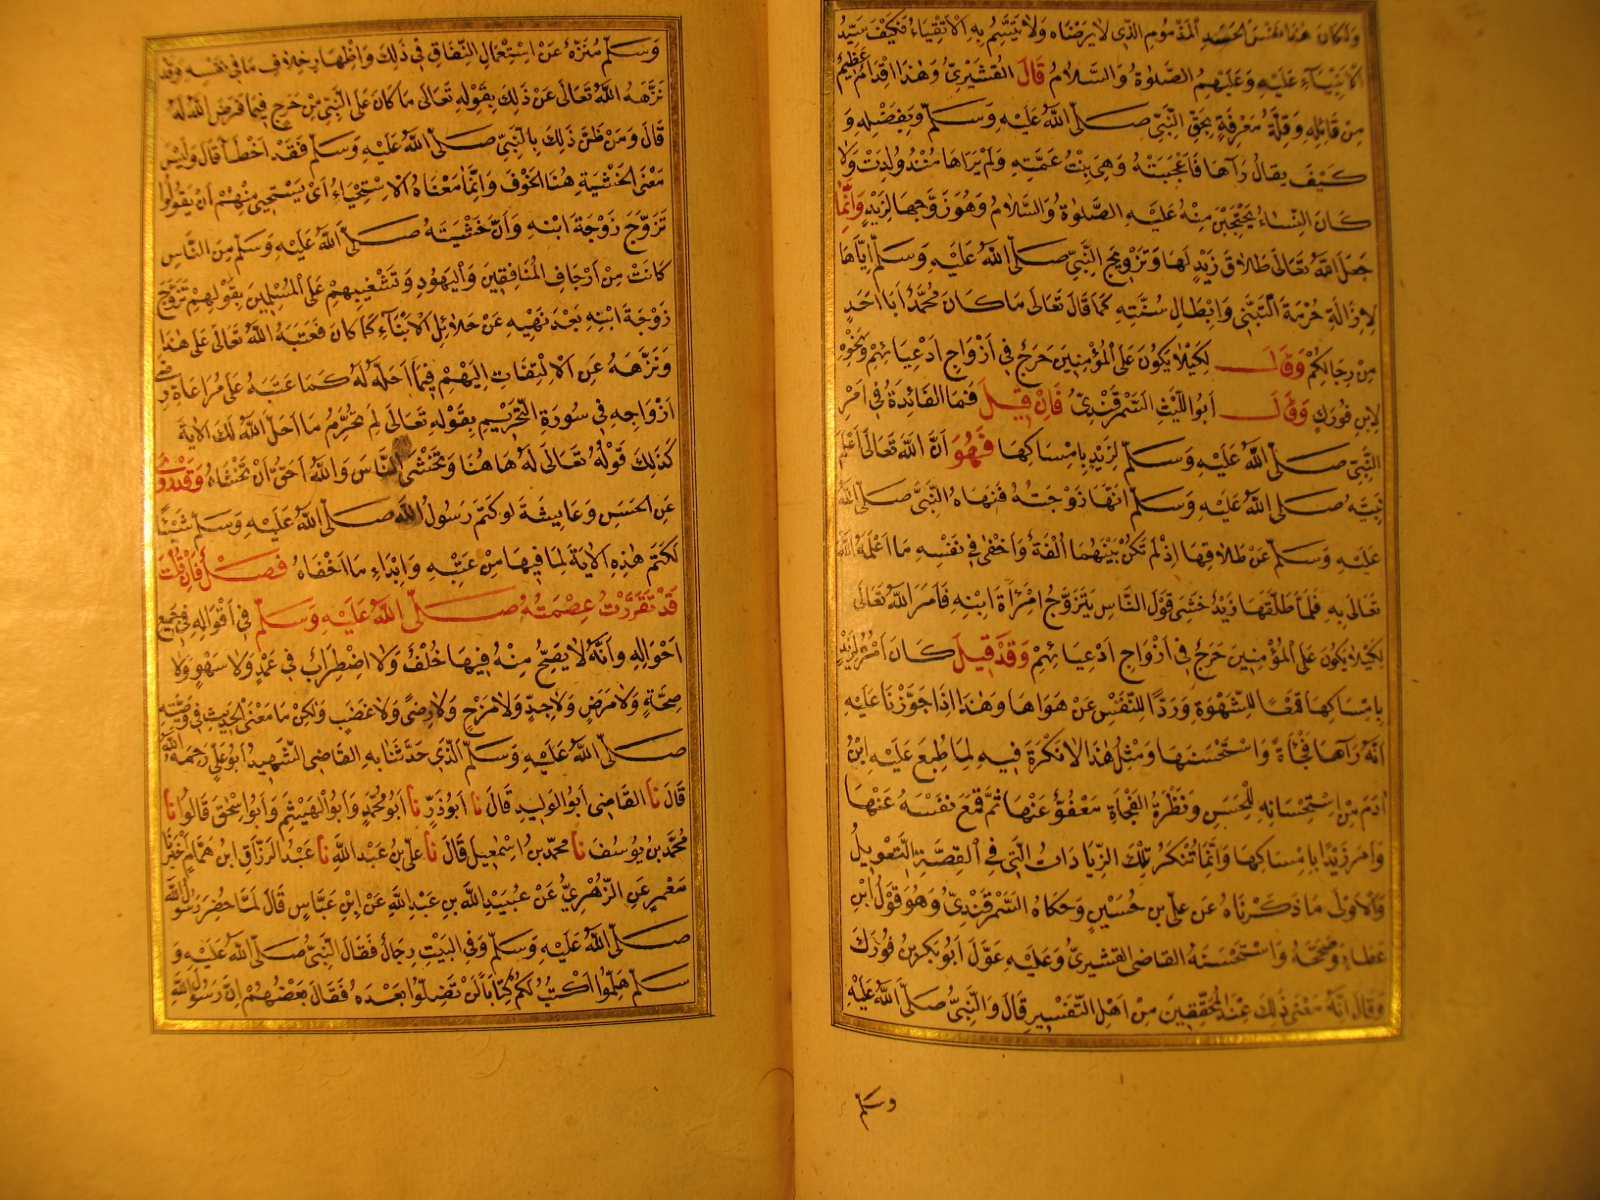 ولكان هذا نفس الحسد المذموم الذي لا يرضاه ولا يتسم به الاتقياء فكيف سيد
الانبياء عليه وعليهم الصلوة والسلام قال القشيري وهذا اقدام عظيم
من قائله وقلة معرفة بحق النبي صلى الله عليه وسلم وبفضله و
كيف يقال رآها فاعجبته وهي بنت عمته ولم يزل يراها منذ ولدت ولا
كان النساء يحتجبن منه عليه الصلوة والسلام وهو زوجها لزيد وانما
جعل الله تعالى طلاق زيد لها وتزويج النبي صلى الله عليه وسلم اياها
لازالة حرمة التبني وابطال سنته كما قال تعالى ما كان محمد ابا احد
من رجالكم وقال لكيلا يكون على المؤمنين حرج في ازواج ادعيائهم ونحوه
لابن فورك وقال ابو الليث السمرقندي فان قيل فما الفائدة في امر
النبي صلى الله عليه وسلم لزيد بامساكها فهو ان الله تعالى اعلم
نبيه صلى الله عليه وسلم انها زوجته فنهاه النبي صلى الله
عليه وسلم عن طلاقها اذ لم تكن بينهما الفة واخفى في نفسه ما اعلمه الله
تعالى به فلما طلقها زيد خشي قول الناس يتزوج امرأة ابنه فامر الله تعالى
لكيلا يكون على المؤمنين حرج في ازواج ادعيائهم وقد قيل كان امره لزيد
بامساكها قمعا للشهوة وردا للنفس عن هواها وهذا اذا جوزنا عليه
انه رآها فجأة واستحسنها ومثل هذا لا نكرة فيه لما طبع عليه ابن
ادم من استحسانه للحسن ونظرة الفجأة معفو عنها ثم قمع نفسه عنها
وامر زيدا بامساكها وانما تنكر تلك الزيادات التي في القصة التعويل
والاولى ما ذكرناه عن علي بن حسين وحكاه السمرقندي وهو قول ابن
عطاء وصححه واستحسنه القاضي القشيري وعليه عول ابو بكر بن فورك
وقال انه معنى ذلك عند المحققين من اهل التفسير قال والنبي صلى الله عليه
وسلم
وسلم منزه عن استعمال النفاق في ذلك واظهار خلاف ما في نفسه وقد
نزهه الله تعالى عن ذلك بقوله تعالى ما كان على النبي من حرج فيما فرض الله له
قال ومن ظن ذلك بالنبي صلى الله عليه وسلم فقد اخطأ قال وليس
معنى الخشية هنا الخوف وانما معناه الاستحياء اي يستحيي منهم ان يقولوا
تزوج زوجة ابنه وان خشيته صلى الله عليه وسلم من الناس
كانت من ارجاف المنافقين واليهود وتشغيبهم على المسلمين بقولهم تزوج
زوجة ابنه بعد نهيه عن حلائل الابناء كما كان فعتبه الله تعالى على هذا
ونزهه عن الالتفات اليهم فيما احله له كما عتبه على مراعاة رضى
ازواجه في سورة التحريم بقوله تعالى لم تحرم ما احل الله لك الاية
كذلك قوله تعالى له هاهنا وتخشى الناس والله احق ان تخشاه وقد روى
عن الحسن وعايشة لو كتم رسول الله صلى الله عليه وسلم شيئا
لكتم هذه الاية لما فيها من عتبه وابداء ما اخفاه فصل فان قلت
قد تقررت عصمته صلى الله عليه وسلم في اقواله في جميع
احواله وانه لا يصح منه فيها خلف ولا اضطراب في عمد ولا سهو ولا
صحة ولا مرض ولا جد ولا مزح ولا رضى ولا غضب ولكن ما معنى الحديث في وصيته
صلى الله عليه وسلم الذي حدثنا به القاضي الشهيد ابو علي رحمه الله
قال نا القاضي ابو الوليد قال نا ابو ذر نا ابو محمد وابو الهيثم وابو اسحق قالوا نا
محمد بن يوسف نا محمد بن اسمعيل قال نا علي بن عبد الله نا عبد الرزاق ابن همام اخبرنا
معمر عن الزهري عن عبيد الله بن عبد الله عن ابن عباس قال لما حضر رسول الله
صلى الله عليه وسلم وفي البيت رجال فقال النبي صلى الله عليه و
سلم هلموا اكتب لكم كتابا لن تضلوا بعده فقال بعضهم ان رسول الله